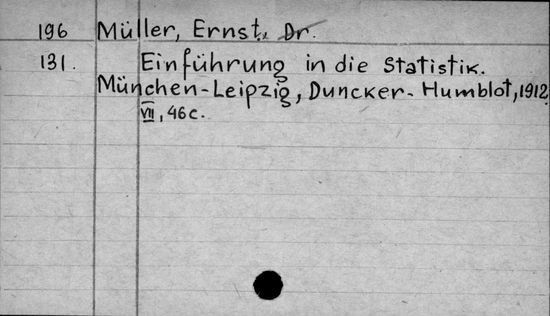 196 Müller, Ernst, Dr.
131. Einführung in die Statistik.
München-Leipzig, Duncker-Humblot, 1912
VII, 46c.